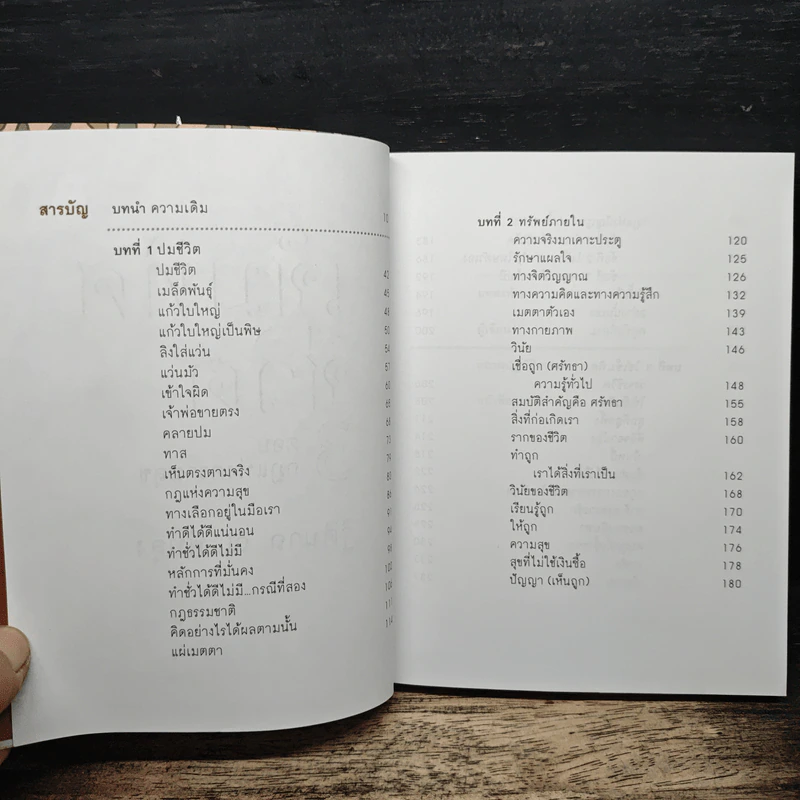 สารบัญ บทนำ ความเดิม 10
บทที่ 1 ปมชีวิต
ปมชีวิต 42
เมล็ดพันธุ์ 45
แก้วใบใหญ่ 48
แก้วใบใหญ่เป็นพิษ 50
ลิงใส่แว่น 54
แว่นมัว 57
เข้าใจผิด 60
เจ้าพ่อขายตรง 65
คลายปม 68
ทาส 73
เห็นตรงตามจริง 74
กฎแห่งความสุข 80
ทางเลือกอยู่ในมือเรา 86
ทำดีได้ดีแน่นอน 91
ทำชั่วได้ดีไม่มี 94
หลักการที่มั่นคง 98
ทำชั่วได้ดีไม่มี...กรณีที่สอง 102
กฎธรรมชาติ
คิดอย่างไรได้ผลตามนั้น
แผ่เมตตา 114
บทที่ 2 ทรัพย์ภายใน
ความจริงมาเคาะประตู 120
รักษาแผลใจ 125
ทางจิตวิญญาณ 126
ทางความคิดและทางความรู้สึก 132
เมตตาตัวเอง 139
ทางกายภาพ 143
วินัย 146
เชื่อถูก (ศรัทธา)
ความรู้ทั่วไป 148
สมบัติสำคัญคือ ศรัทธา 155
สิ่งที่ก่อเกิดเรา 158
รากของชีวิต 160
ทำถูก
เราได้สิ่งที่เราเป็น 162
วินัยของชีวิต 168
เรียนรู้ถูก 170
ให้ถูก 174
ความสุข 176
สุขที่ไม่ใช้เงินซื้อ 178
ปัญญา (เห็นถูก) 180